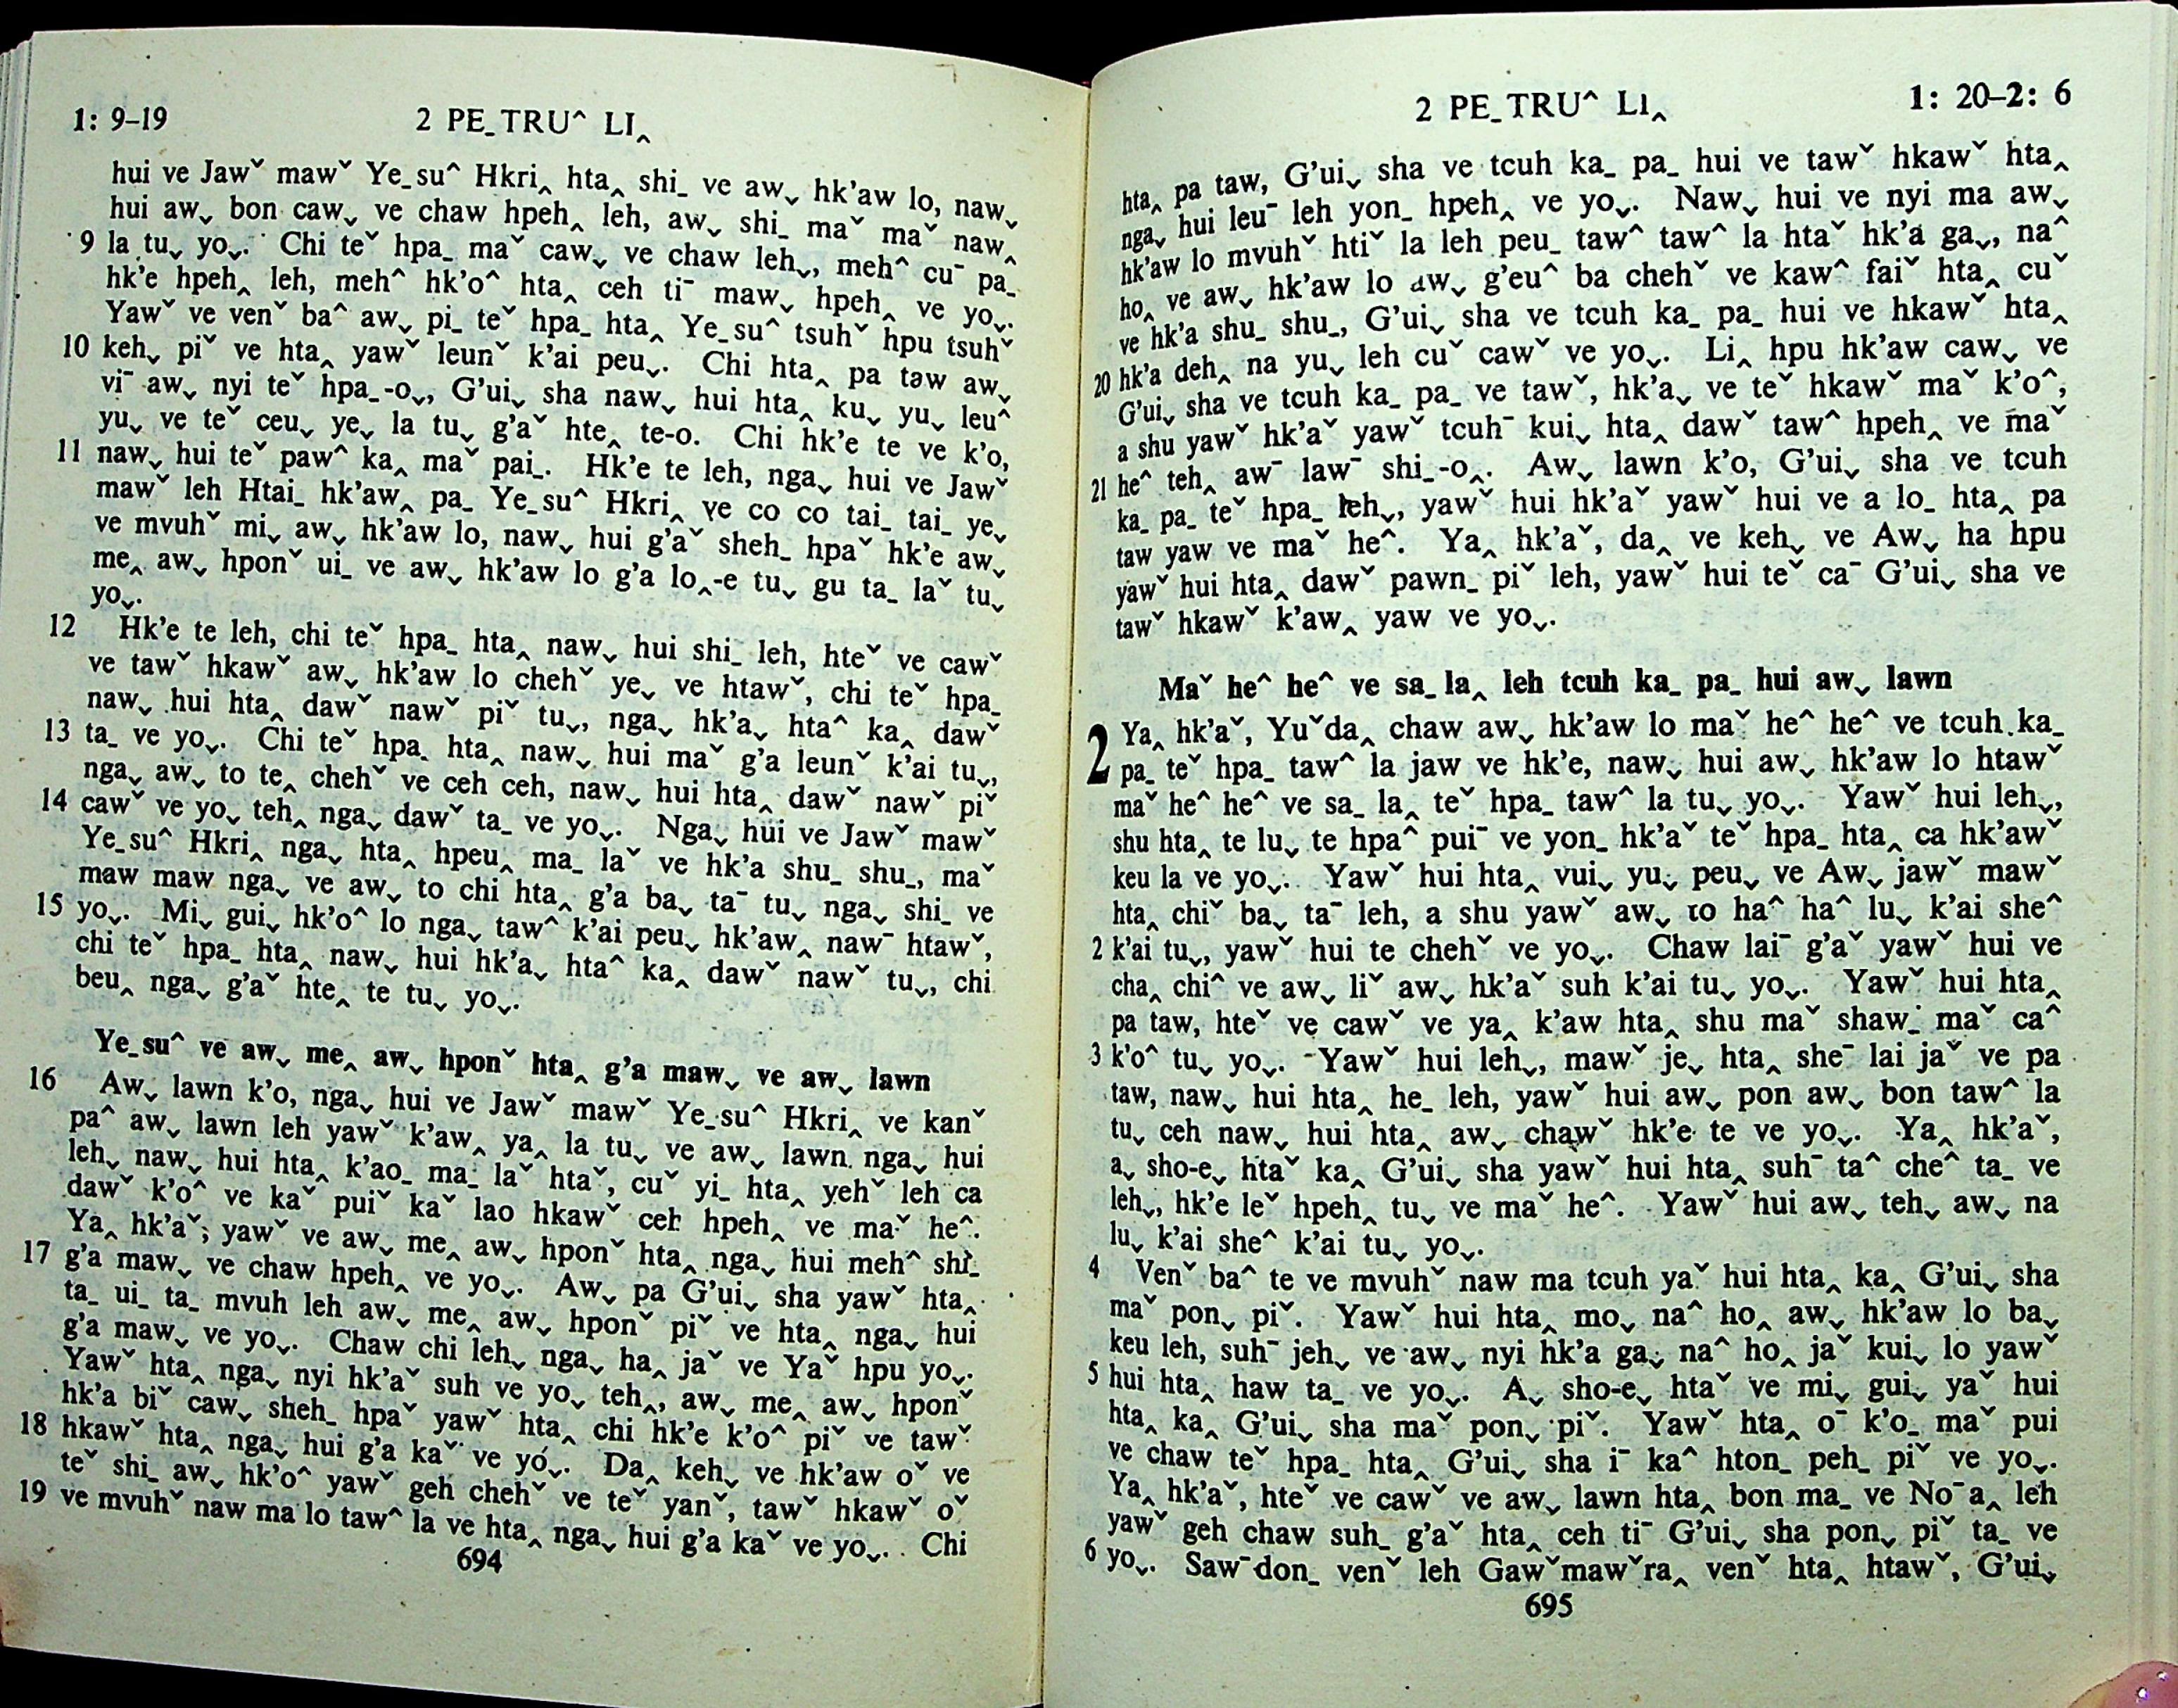 1: 9–19
2 PE_TRU^ LI‸
hui ve Jawˇ mawˇ Ye_su^ Hkri‸ hta‸ shi_ ve aw˯ hk’aw lo, naw˯
hui aw˯ bon caw˯ ve chaw hpeh‸ leh, aw˯ shi_ maˇ maˇ naw‸
9 la tu˯ yo˯. Chi teˇ hpa_ maˇ caw˯ ve chaw leh˯, meh^ cuˉ pa_
hk’e hpeh‸ leh, meh^ hk’o^ hta‸ ceh tiˉ maw˯ hpeh‸ ve yo˯.
Yawˇ ve venˇ ba^ aw˯ pi_ teˇ hpa_ hta‸ Ye_su^ tsuhˇ hpu tsuhˇ
10 keh˯ piˇ ve hta‸ yawˇ leunˇ k’ai peu˯. Chi hta‸ pa taw aw˯
viˉ aw˯ nyi teˇ hpa_-o˯, G’ui˯ sha naw˯ hui hta‸ ku˯ yu˯ leu^
yu˯ ve teˇ ceu˯ ye˯ la tu˯ g’aˇ hte‸ te-o. Chi hk’e te ve k’o,
11 naw˯ hui teˇ paw^ ka‸ maˇ pai_. Hk’e te leh, nga˯ hui ve Jawˇ
mawˇ leh Htai_ hk’aw‸ pa_ Ye_su^ Hkri‸ ve co co tai_ tai_ ye˯
ve mvuhˇ mi˯ aw˯ hk’aw lo, naw˯ hui g’aˇ sheh_ hpaˇ hk’e aw˯
me‸ aw˯ hponˇ ui_ ve aw˯ hk’aw lo g’a lo‸-e tu˯ gu ta_ laˇ tu˯
yo˯.
12 Hk’e te leh, chi teˇ hpa_ hta‸ naw˯ hui shi_ leh, hteˇ ve cawˇ
ve tawˇ hkawˇ aw˯ hk’aw lo chehˇ ye˯ ve htawˇ, chi teˇ hpa_
naw˯ hui hta‸ dawˇ nawˇ piˇ tu˯, nga˯ hk’a˯ hta^ ka‸ dawˇ
13 ta_ ve yo˯. Chi teˇ hpa_ hta‸ naw˯ hui maˇ g’a leunˇ k’ai tu˯,
nga˯ aw˯ to te‸ chehˇ ve ceh ceh, naw˯ hui hta‸ dawˇ nawˇ piˇ
14 cawˇ ve yo˯ teh‸ nga˯ dawˇ ta_ ve yo˯. Nga˯ hui ve Jawˇ mawˇ
Ye_su^ Hkri‸ nga˯ hta‸ hpeu‸ ma_ laˇ ve hk’a shu_ shu_, maˇ
maw maw nga˯ ve aw˯ to chi hta‸ g’a ba˯ taˉ tu˯ nga˯ shi_ ve
15 yo˯. Mi˯ gui˯ hk’o^ lo nga˯ taw^ k’ai peu˯ hk’aw‸ nawˉ htawˇ,
chi teˇ hpa_ hta‸ naw˯ hui hk’a˯ hta^ ka‸ dawˇ nawˇ tu˯, chi
beu‸ nga˯ g’aˇ hte‸ te tu˯ yo˯.
Ye_su^ ve aw˯ me‸ aw˯ hponˇ hta‸ g’a maw˯ ve aw˯ lawn
16 Aw˯ lawn k’o, nga˯ hui ve Jawˇ mawˇ Ye_su^ Hkri‸ ve kanˇ
pa^ aw˯ lawn leh yawˇ k’aw‸ ya‸ la tu˯ ve aw˯ lawn nga˯ hui
leh˯ naw˯ hui hta‸ k’ao_ ma_ laˇ htaˇ, cuˇ yi_ hta‸ yehˇ leh ca
dawˇ k’o^ ve kaˇ puiˇ kaˇ lao hkawˇ ceh hpeh‸ ve maˇ he^.
Ya‸ hk’aˇ; yawˇ ve aw˯ me‸ aw˯ hponˇ hta‸ nga˯ hui meh^ shi_
17 g’a maw˯ ve chaw hpeh‸ ve yo˯. Aw˯ pa G’ui˯ sha yawˇ hta‸
ta_ ui_ ta_ mvuh leh aw˯ me‸ aw˯ hponˇ piˇ ve hta‸ nga˯ hui
g’a maw˯ ve yo˯. Chaw chi leh˯ nga˯ ha‸ jaˇ ve Yaˇ hpu yo˯.
Yawˇ hta‸ nga˯ nyi hk’aˇ suh ve yo˯ teh‸, aw˯ me‸ aw˯ hponˇ
hk’a biˇ caw˯ sheh_ hpaˇ yawˇ hta‸ chi hk’e k’o^ piˇ ve tawˇ
18 hkawˇ hta‸ nga˯ hui g’a kaˇ ve yo˯. Da‸ keh˯ ve hk’aw oˇ ve
teˇ shi_ aw˯ hk’o^ yawˇ geh chehˇ ve teˇ yanˇ, tawˇ hkawˇ oˇ
19 ve mvuhˇ naw ma lo taw^ la ve hta‸ nga˯ hui g’a kaˇ ve yo˯. Chi
694
2 PE_TRU^ LI‸
1: 20–2: 6
hta‸ pa taw, G’ui˯ sha ve tcuh ka_ pa_ hui ve tawˇ hkawˇ hta‸
nga˯ hui leuˉ leh yon_ hpeh‸ ve yo˯. Naw˯ hui ve nyi ma aw˯
hk’aw lo mvuhˇ htiˇ la leh peu_ taw^ taw^ la htaˇ hk’a ga˯, na^
ho‸ ve aw˯ hk’aw lo aw˯ g’eu^ ba chehˇ ve kaw^ faiˇ hta‸ cuˇ
ve hk’a shu_ shu_, G’ui˯ sha ve tcuh ka_ pa_ hui ve hkawˇ hta‸
hk’a deh‸ na yu˯ leh cuˇ cawˇ ve yo˯. Li‸ hpu hk’aw caw˯ ve
20 G’ui˯ sha ve tcuh ka_ pa_ ve tawˇ, hk’a˯ ve teˇ hkawˇ maˇ k’o^,
a shu yawˇ hk’aˇ yawˇ tcuhˉ kui˯ hta‸ dawˇ taw^ hpeh‸ ve maˇ
he^ teh‸ awˉ lawˉ shi_-o‸. Aw˯ lawn k’o, G’ui˯ sha ve tcuh
21 ka_ pa_ teˇ hpa_ leh˯, yawˇ hui hk’aˇ yawˇ hui ve a lo_ hta‸ pa
taw yaw ve maˇ he^. Ya‸ hk’aˇ, da‸ ve keh˯ ve Aw˯ ha hpu
yawˇ hui hta‸ dawˇ pawn_ piˇ leh, yawˇ hui teˇ caˉ G’ui˯ sha ve
tawˇ hkawˇ k’aw‸ yaw ve yo˯.
Maˇ he^ he^ ve sa_ la‸ leh tcuh ka_ pa_ hui aw˯ lawn
2 Ya‸ hk’aˇ, Yuˇda‸ chaw aw˯ hk’aw lo maˇ he^ he^ ve tcuh ka_
pa_ teˇ hpa_ taw^ la jaw ve hk’e, naw˯ hui aw˯ hk’aw lo htawˇ
maˇ he^ he^ ve sa_ la‸ teˇ hpa_ taw^ la tu˯ yo˯. Yawˇ hui leh˯,
shu hta‸ te lu˯ te hpa^ puiˉ ve yon_ hk’aˇ teˇ hpa_ hta‸ ca hk’awˇ
keu la ve yo˯. Yawˇ hui hta‸ vui˯ yu˯ peu˯ ve Aw˯ jawˇ mawˇ
hta‸ chiˇ ba˯ taˉ leh, a shu yawˇ aw˯ to ha^ ha^ lu˯ k’ai she^
2 k’ai tu˯, yawˇ hui te chehˇ ve yo˯. Chaw laiˉ g’aˇ yawˇ hui ve
cha‸ chi^ ve aw˯ liˇ aw˯ hk’aˇ suh k’ai tu˯ yo˯. Yawˇ hui hta‸
pa taw, hteˇ ve cawˇ ve ya‸ k’aw hta‸ shu maˇ shaw_ maˇ ca^
3 k’o^ tu˯ yo˯. Yawˇ hui leh˯, mawˇ je˯ hta‸ sheˉ lai jaˇ ve pa
taw, naw˯ hui hta‸ he_ leh, yawˇ hui aw˯ pon aw˯ bon taw^ la
tu˯ ceh naw˯ hui hta‸ aw˯ chawˇ hk’e te ve yo˯. Ya‸ hk’aˇ,
a˯ sho-e˯ htaˇ ka‸ G’ui˯ sha yawˇ hui hta‸ suhˉ ta^ che^ ta_ ve
leh˯, hk’e leˇ hpeh‸ tu˯ ve maˇ he^. Yawˇ hui aw˯ teh˯ aw˯ na
lu˯ k’ai she^ k’ai tu˯ yo˯.
4 Venˇ ba^ te ve mvuhˇ naw ma tcuh yaˇ hui hta‸ ka‸ G’ui˯ sha
maˇ pon˯ piˇ. Yawˇ hui hta‸ mo˯ na^ ho‸ aw˯ hk’aw lo ba˯
keu leh, suhˉ jeh˯ ve aw˯ nyi hk’a ga˯ na^ ho‸ jaˇ kui˯ lo yawˇ
5 hui hta‸ haw ta_ ve yo˯. A˯ sho-e˯ htaˇ ve mi˯ gui˯ yaˇ hui
hta‸ ka‸ G’ui˯ sha maˇ pon˯ piˇ. Yawˇ hta‸ oˉ k’o_ maˇ pui
ve chaw teˇ hpa_ hta‸ G’ui˯ sha iˉ ka^ hton_ peh_ piˇ ve yo˯.
Ya‸ hk’aˇ, hteˇ ve cawˇ ve aw˯ lawn hta‸ bon ma_ ve Noˉa‸ leh
yawˇ geh chaw suh_ g’aˇ hta‸ ceh tiˉ G’ui˯ sha pon˯ piˇ ta_ ve
6 yo˯. Sawˉdon_ venˇ leh Gawˇmawˇra‸ venˇ hta‸ htawˇ, G’ui˯
695